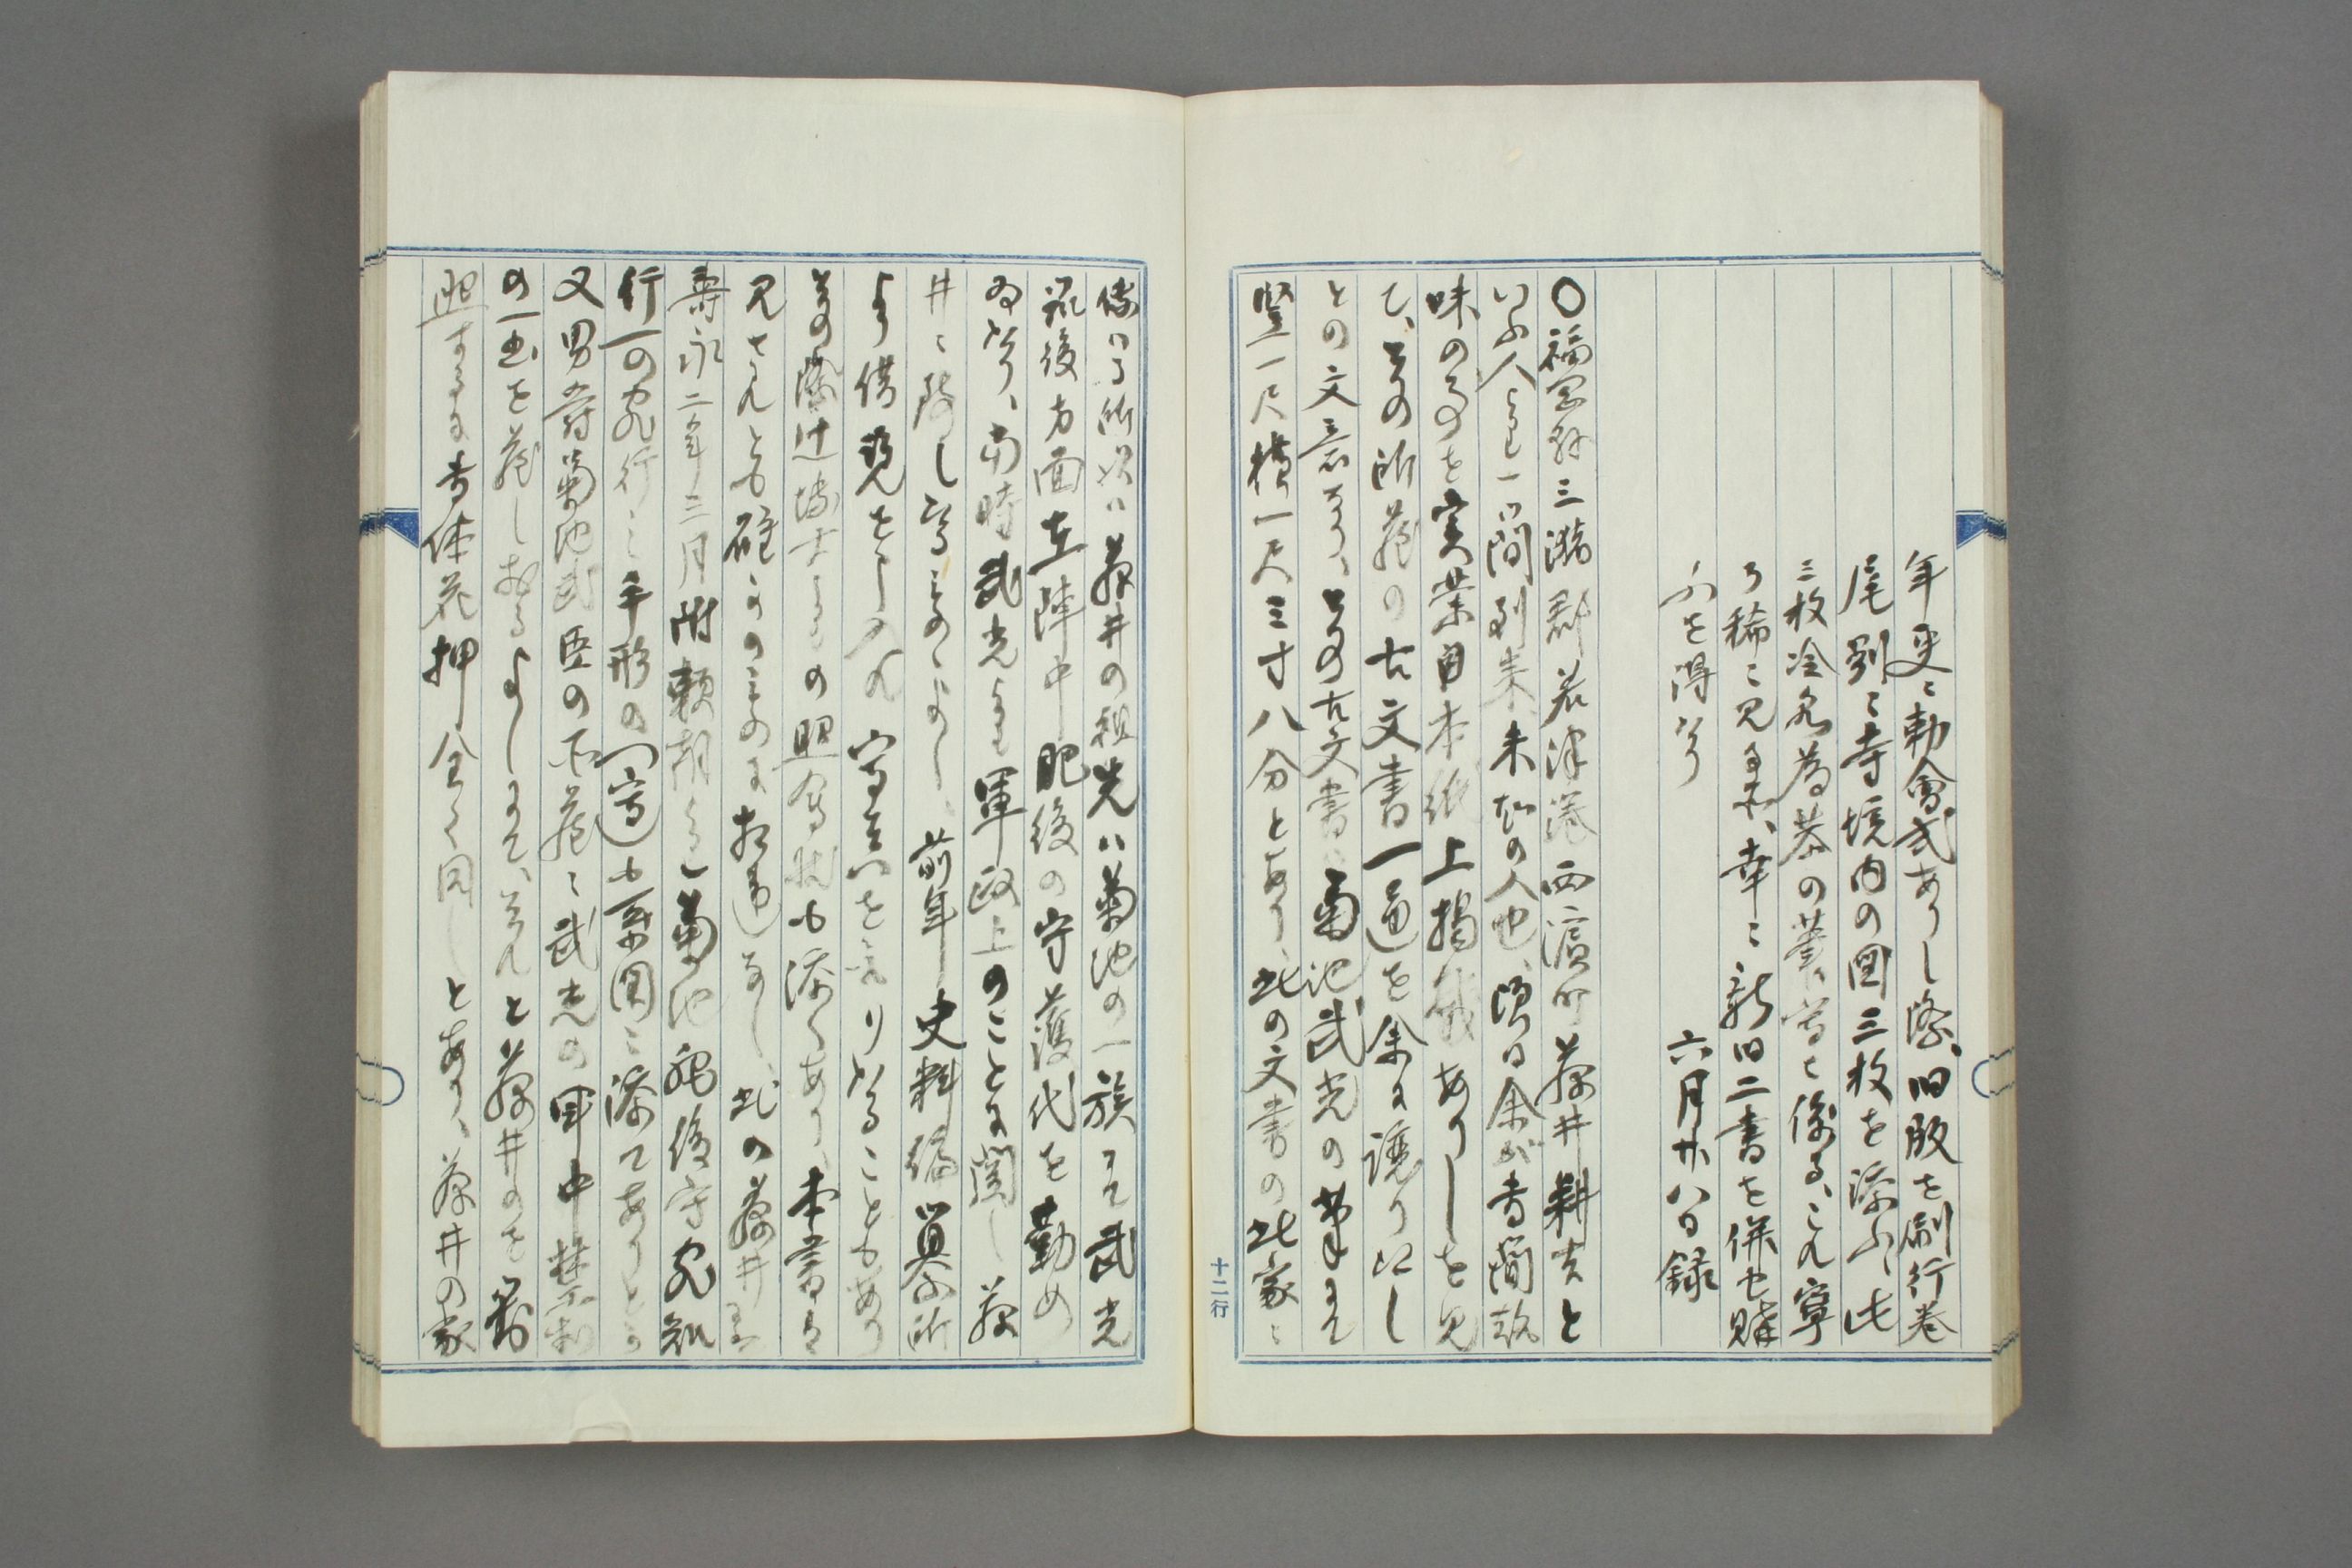 年更ニ勅會式ありし際、旧版を刷行巻
尾別ニ寺境内の図三枚を添ふ、此
三枚冷泉為恭の筆ニ係る、これ寧
ろ稀ニ見る本、幸ニ新旧二書を併セ購
ふを得たり
六月廿八日録
〇福岡縣三潴郡若津港西濱町藤井耕吉と
いふ人より一間到来、未知の人也、頃日余が書簡趣
味のものを実業日本紙上掲載ありしを見
て、其の所蔵の古文書一通を余に譲り込し
との文意なり、其の古文書ハ菊池武光の筆にて
竪一尺横一尺三寸八分とあり、此の文書の此家ニ
傳はる所以ハ藤井の祖先ハ菊池の一族にて武光
筑後方面在陣中肥後の守護代を勤め
居たり、当時武光より軍政上のことに関し藤
井ニ与し書ものゝよし、前年史料編纂所
より借覧をし入れ写真をとりたることもあり
其の際辻博士よりの照會状も添へあり、本書は
見されとも確かのものに相違なし、此の藤井
壽永二年三月附頼朝より菊池肥後守宛知
行一の宛行ニ手形の一通も系図ニ添てありと
又男爵菊池武臣の所蔵ニ武光の軍中禁制
の一書を蔵しおるよしにて、それと藤井のを對
照するに書体花押全く同しとあり、藤井の家
十二行